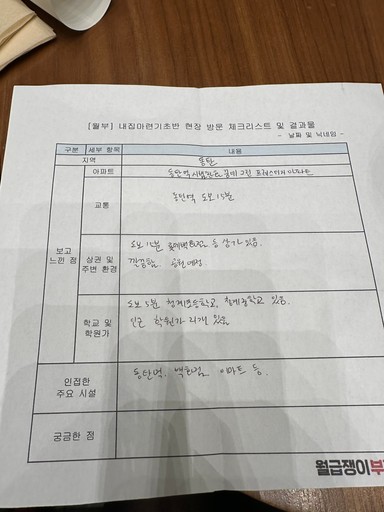 [월부] 내집마련기초반 현장 방문 체크리스트 및 결과물
- 날짜 및 닉네임 -
구분 세부 항목 내용
지역 동탄
보고 느낀 점
아파트 동탄역 시범 그린 프레스티지 아파트
교통 동탄역 도보 15분
상권 및 주변 환경 도보 10분 롯데백화점 등 상가 있음.
깔끔함. 공원
학교 및 학원가 도보 5분 청계초등학교, 청계중학교 있음.
인근 학원가 있음
인접한 주요 시설 동탄역, 백화점, 이마트 등.
궁금한 점
월급쟁이부